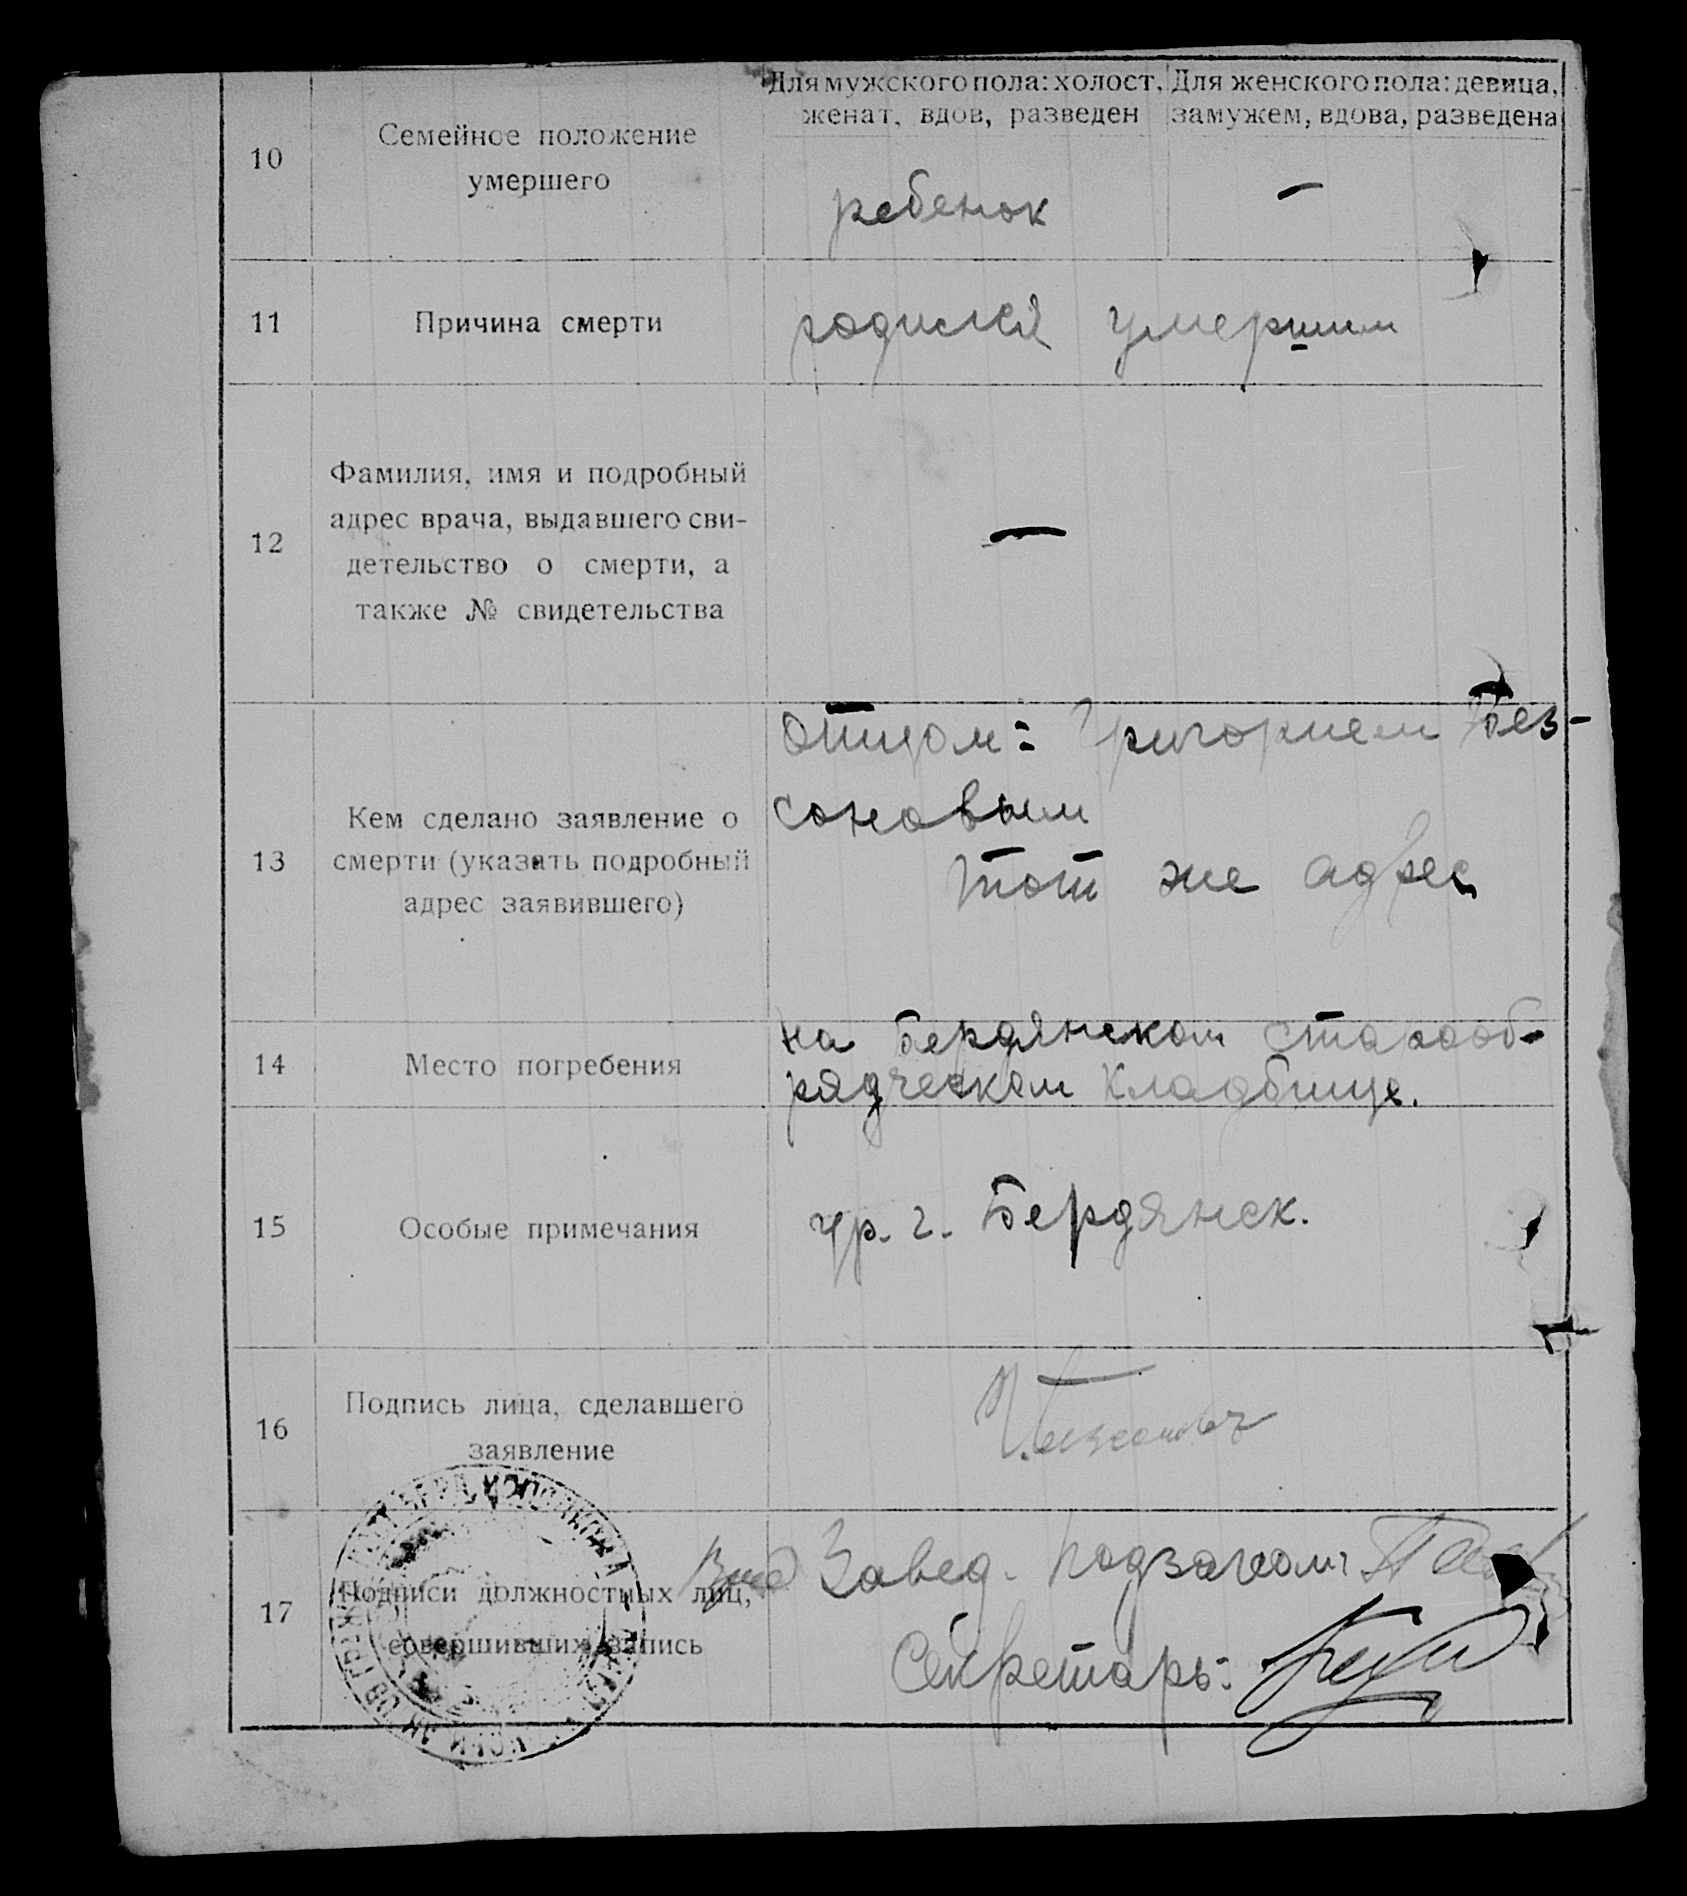 Для мужского пола: холост, женат, вдов, разведен
Для женского пола: девица, замужем, вдова, разведена
10
Семейное положение
умершего
ребенок
–
11
Причина смерти
родился умершим
12
Фамилия, имя и подробный
адрес врача, выдавшего сви-
детельство о смерти, а
также № свидетельства
–
13
Кем сделано заявление о
смерти (указать подробный
адрес заявившего)
отцом: Григорием Без-
соновым
тот же адрес
14
Место погребения
на бердянском старооб-
рядческом кладбище.
15
Особые примечания
гр. г. Бердянск.
16
Подпись лица, сделавшего
заявление
17
Подписи должностных лиц,
совершивших запись
Завед. подзагсом:
Секретарь: